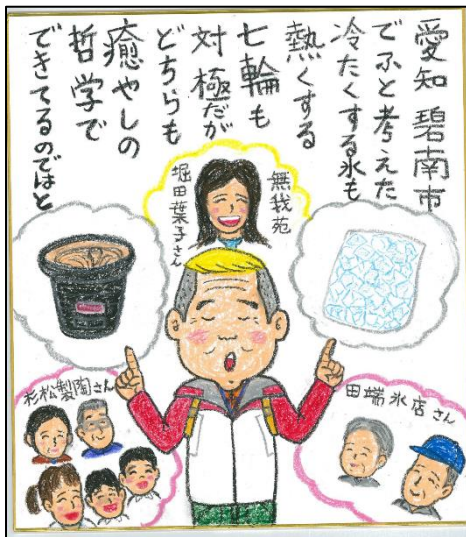 愛知 碧南市
でふと考えた
冷たくする氷も
熱くする
七輪も
対極だが
どちらも
癒やしの
哲学で
できてるのではと
無我苑
堀田葉子さん
杉松製陶さん
田端氷店さん